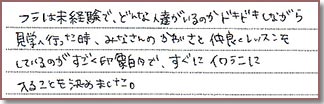 フラは未経験で、どんな人達がいるのかドキドキしながら
見学へ行った時、みなさんのかお さと仲良くレッスンを
しているのがすごく印象的で、すぐにイワラニに
入ることを決めました。